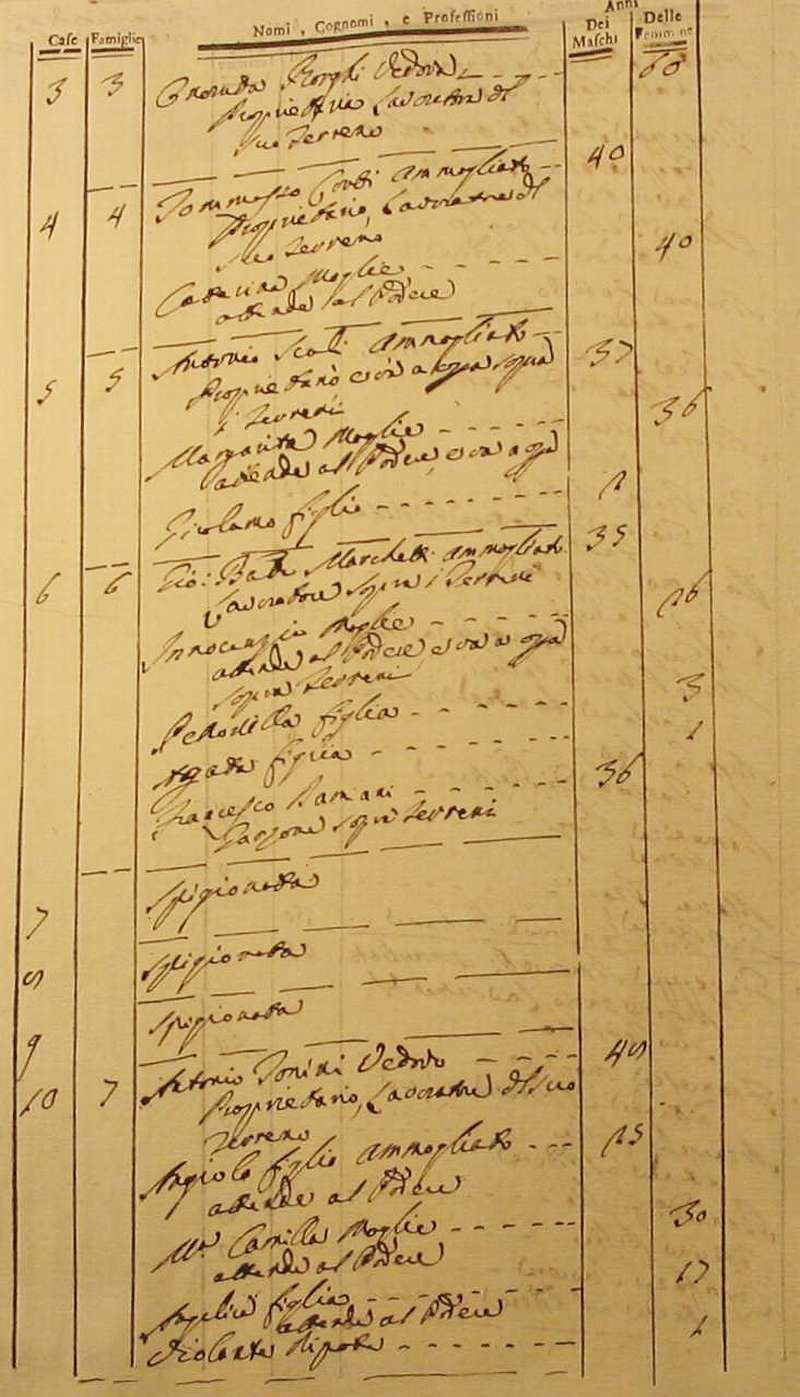 Case Famiglie Nomi, Cognomi, e Professioni Anni
Dei Maschi Delle Femmine
3 3 Vedova 60
Proprietaria Lavoratora del
suo Terreno
4 4 Tommasso Conti Ammogliato 40
Proprietario, Lavoratore del
suo Terreno
Catterina Moglie 40
attende al Podere
5 5 Antonio Ammogliato 37
Proprietario e và a opra sopra
i Terreni
Margarita Moglie 36
attende al Podere, e va a opra
Girolamo figlio
6 6 Gio: Batta Marchetti Ammogliato 35
Lavoratore sopra i Terreni
Innocenzia Moglie 26
attende al Podere e va a opra
sopra Terreni
Petronilla figlia 3
Agata figlia 1
Francesco Damiani 36
Garzone sopra Terreni
7 Spigionata
8 Spigionata
9 Spigionata
10 7 Antonio Tonini Vedovo 48
Proprietario, Lavoratore del suo
Terreno
Angiolo figlio Ammogliato 25
attende al Podere
Ma Camilla Moglie 30
attende al Podere
Angelica figlia 17
attende al Podere
Violante Nipote 1